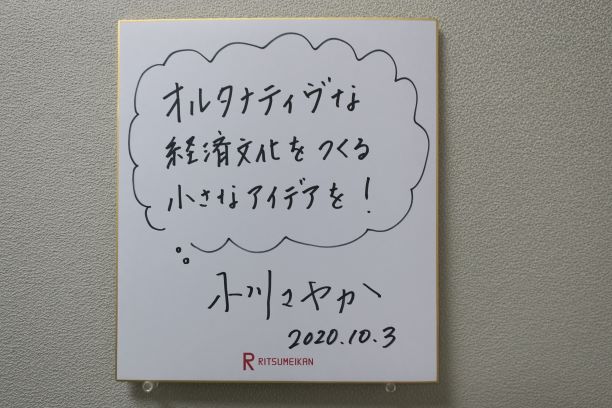 オルタナティヴな
経済文化をつくる
小さなアイデアを！
小川さやか
2020.10.3
R RITSUMEIKAN